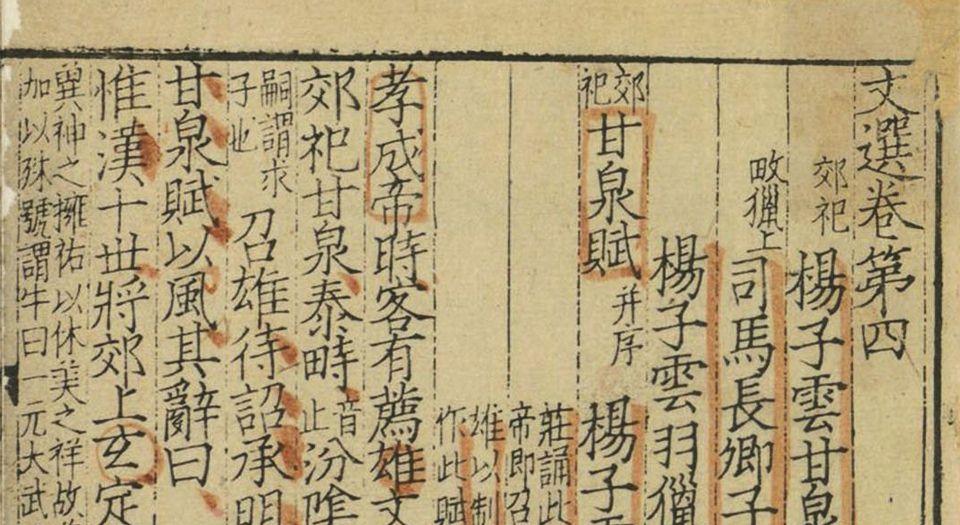 文選卷第四
郊祀 楊子雲甘泉
畋獵上 司馬長卿子
楊子雲羽獵
郊祀 甘泉賦 并序 楊子
莊誦此
帝即召
雄以制
作此賦
孝成帝時客有薦雄文
郊祀甘泉泰畤 音止 汾陰
嗣謂求
子也
召雄待詔承明
甘泉賦以風其辭曰
惟漢十世將郊上玄定
冀神之擁祐以休美之祥故
加以殊號謂牛曰一元大武